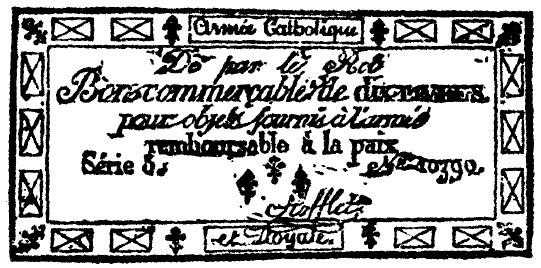 Armée Catholique
De par le Roi
Bon commerçable de
pour objets fournis à l'armée
remboursable à la paix
Série 5. No. 10390.
Stofflet
et Royale.